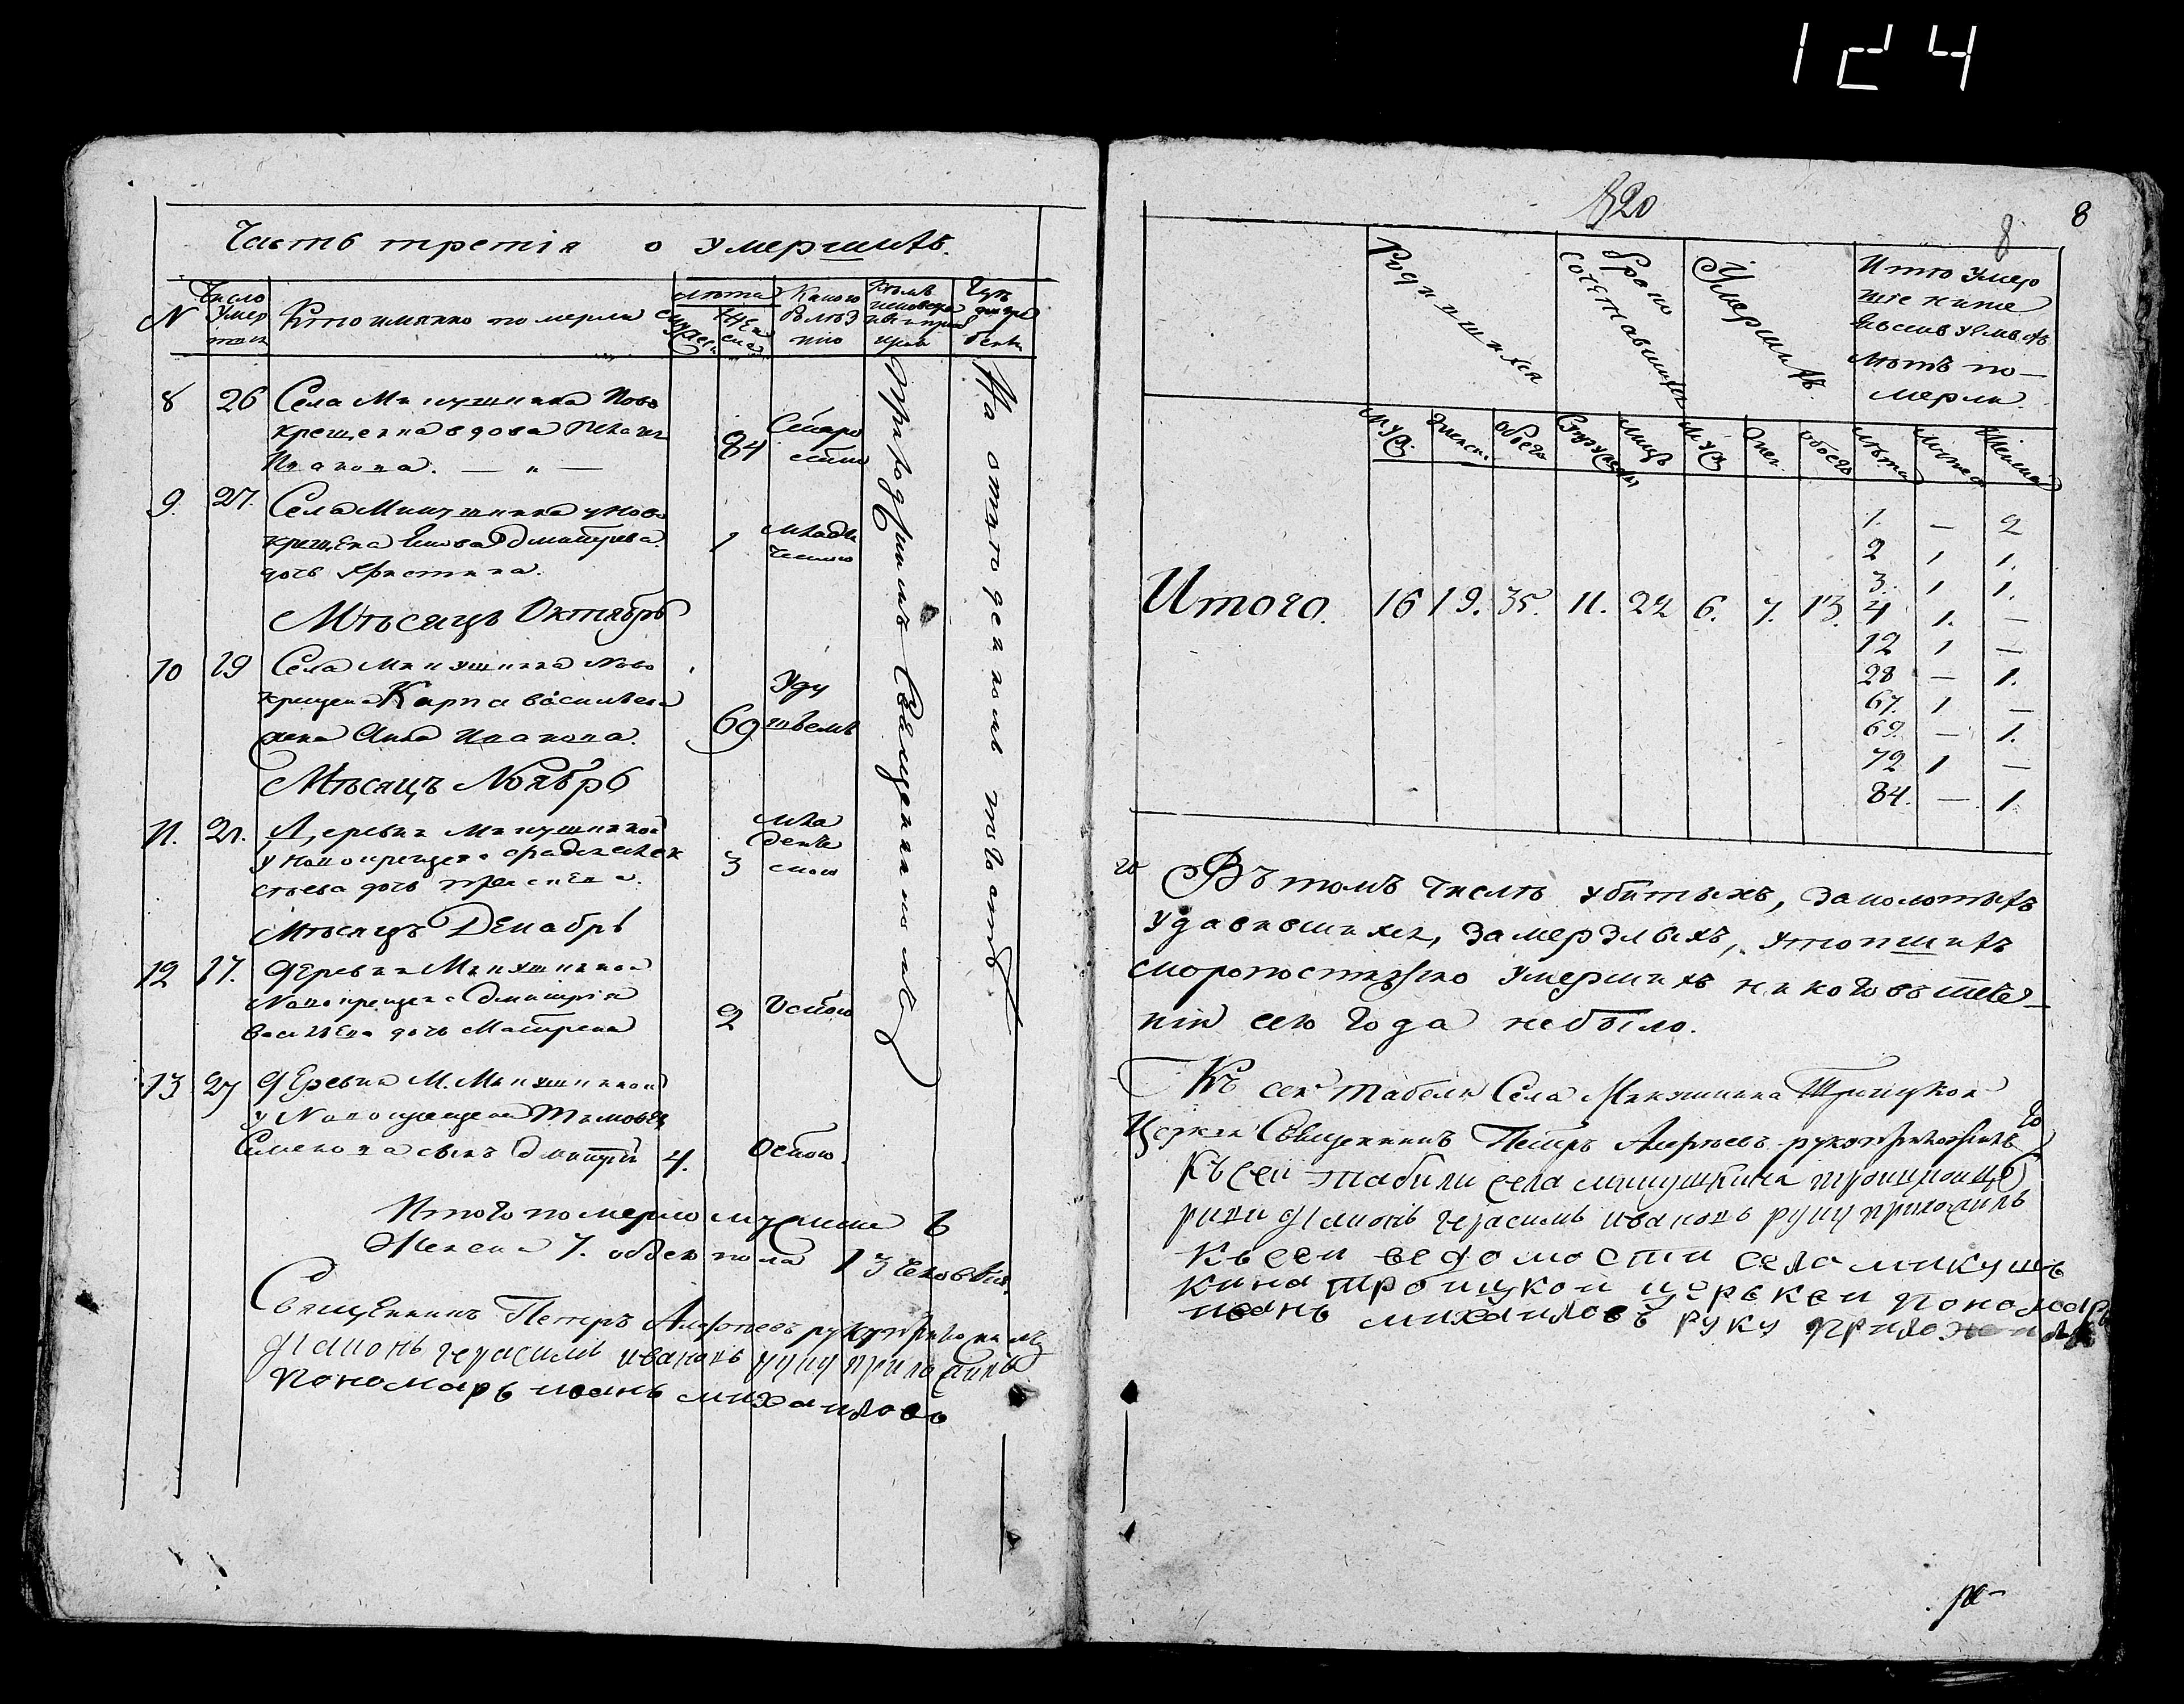 124
Часть третія о умершихъ.
N
Число умер
шихъ
Кто имянно померли
лѣта
мужеска
женска
Какою
болѣз
нію
Кѣмъ
исповѣда
ны и прио
щены
Гдѣ
погре
бены
8 26 Села Микушкина Ново
крещенна вдова
Иванова. — „ —
84
Старо
стію
9. 27. Села Микушкина у Ново
крещена Якова Дмитріева
дочь Христина.
1
младѣн
ческою
Мѣсяцъ Октябрь
10 29 Села Микушкина Ново
крещена Карпа Васильева
жена Анна Иванова.
69
Уду
шьемъ
Мѣсяцъ Ноябрь
11. 21. Деревни Микушкиной
у Новокрещена
дочь
3
мла
денче
скою
Мѣсяцъ Декабрь
12 17. Деревни Микушкиной
Новокрещена Дмитрія
Васильева дочь Матрена
2
Оспою
13 27 Деревни М. Микушкиной
у Новокрещена Тимофея
Семенова сынъ Дмитрій 4.
Оспою.
Приходскимъ Священникомъ
На отведенномъ мѣстѣ
Итого померло мужеска 6
Женска 7. обоего пола 13 человѣкъ.
Священникъ Петръ Алефѣевъ руку приложилъ
діаконъ герасимъ ивановъ руку приложилъ
пономарь иванъ михаиловъ
820
8
8
Родившихся
Бракомъ
сочетавшихся
Умершихъ.
Итого умер
шіе ниже
лѣтъ по—
мерли.
муж.
женск.
обоего
Супружествъ
лицъ
муж
жен.
обоего
лѣта
мужеска
женска
Итого. 16 19. 35. 11. 22 6. 7. 13.
1. — 2
2 1 1.
3. 1 1.
4 1. —
12 1 —
28 — 1.
67. 1 —
69. — 1.
72 1 —
84. — 1.
Въ томъ числѣ убитыхъ, заколотыхъ
удавившихся, замерзлыхъ, утопшихъ
скоропостижно умершихъ никого въ тече-
ніи сего года небыло.
Къ сей табели Села Микушкина Троицкой
Церкви Священникъ Петръ Алефѣевъ руку приложилъ
Къ сей табили села микушкина троицкой це
ркви діаконъ герасимъ ивановъ руку приложилъ
Къ сей ведомости села микушъ
кина троицкой церькви пономарь
иванъ михаиловъ руку приложилъ
ре-